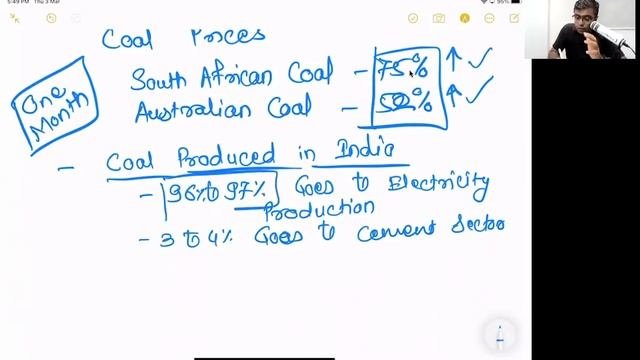 5:49 PM Thu 3 Mar
95%
Coal Prices
One Month
South African Coal - 75% ↑ ✓
Australian Coal - 50% ↑ ✓
- Coal Produced in India
- 96% to 97% Goes to Electricity
Production
- 3 to 4% Goes to Cement Sector